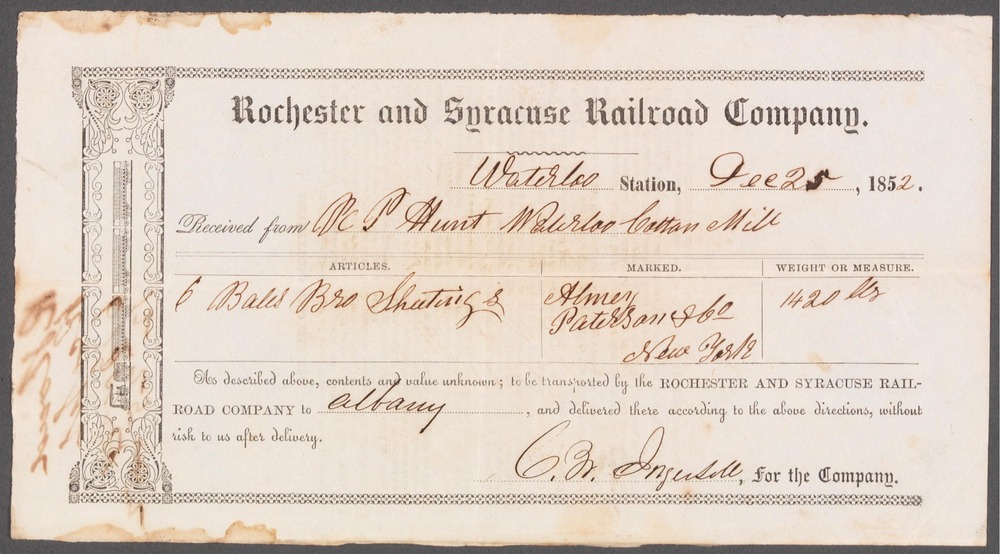 Rochester and Syracuse Railroad Company.
Waterloo Station, Dec 25, 1852.
Received from R P Hunt Waterloo Cotton Mill
ARTICLES. MARKED. WEIGHT OR MEASURE.
6 Bales Bro Sheetings Almey 1420 lbs
Paterson & Co
New York
As described above, contents and value unknown; to be transported by the ROCHESTER AND SYRACUSE RAIL-
ROAD COMPANY to Albany, and delivered there according to the above directions, without
risk to us after delivery.
C. W. Ingersoll, For the Company.